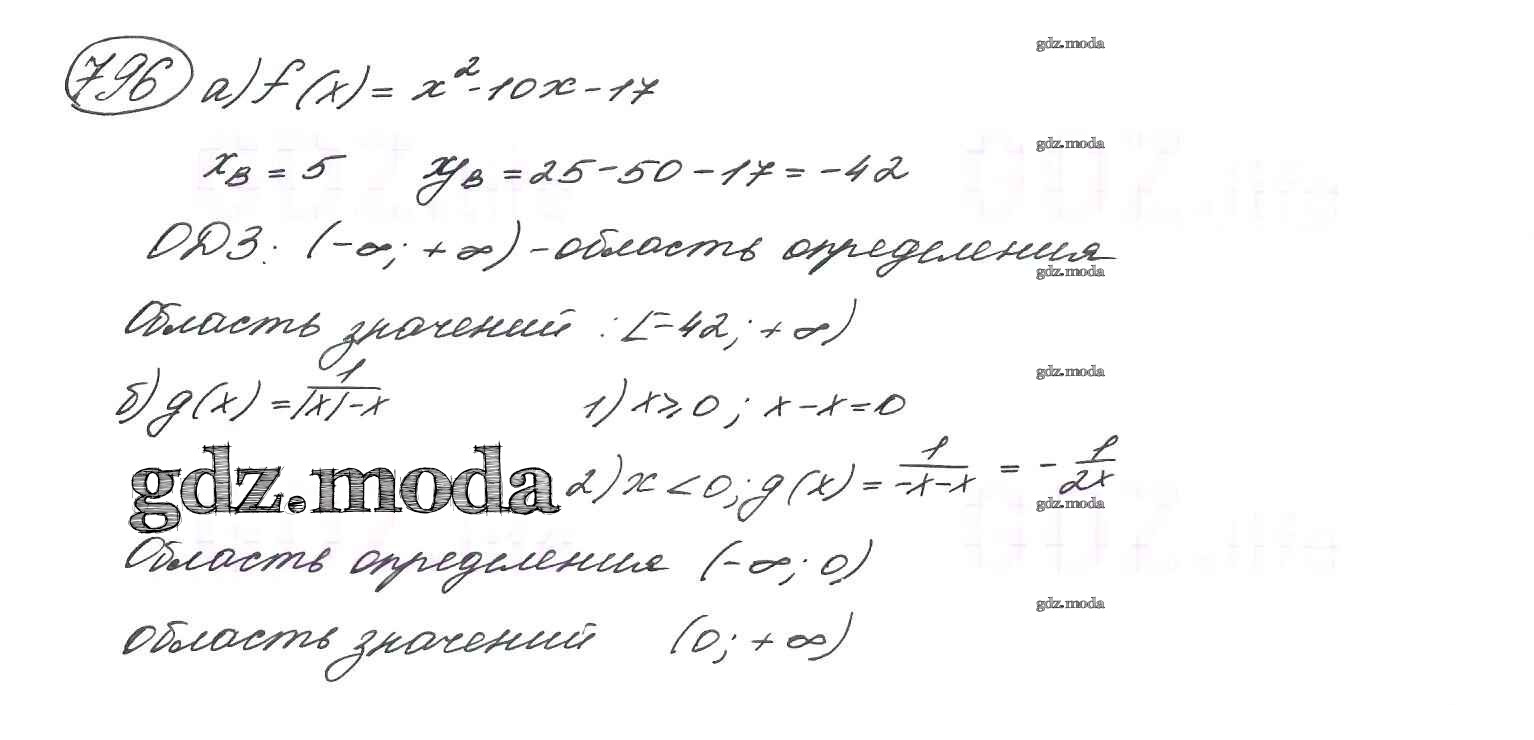 796 а) f(x) = x² - 10x - 17
gdz.moda
gdz.moda
xв = 5 yв = 25 - 50 - 17 = -42
ОДЗ: (-∞; +∞) - область определения
gdz.moda
Область значений : [-42; +∞)
gdz.moda
б) g(x) = 1/(|x|-x) 1) x ⩾ 0; x - x = 0
gdz.moda 2) x < 0; g(x) = 1/(-x-x) = - 1/(2x)
gdz.moda
Область определения (-∞; 0)
gdz.moda
область значений (0; +∞)